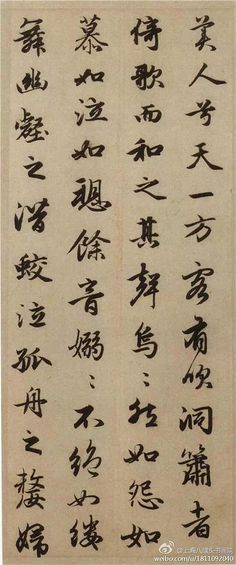 美人兮天一方客有吹洞簫者
倚歌而和之其聲烏〻然如怨如
慕如泣如愬餘音嫋〻不絕如縷
舞幽壑之潛蛟泣孤舟之嫠婦
weibo.com/u/1811092040